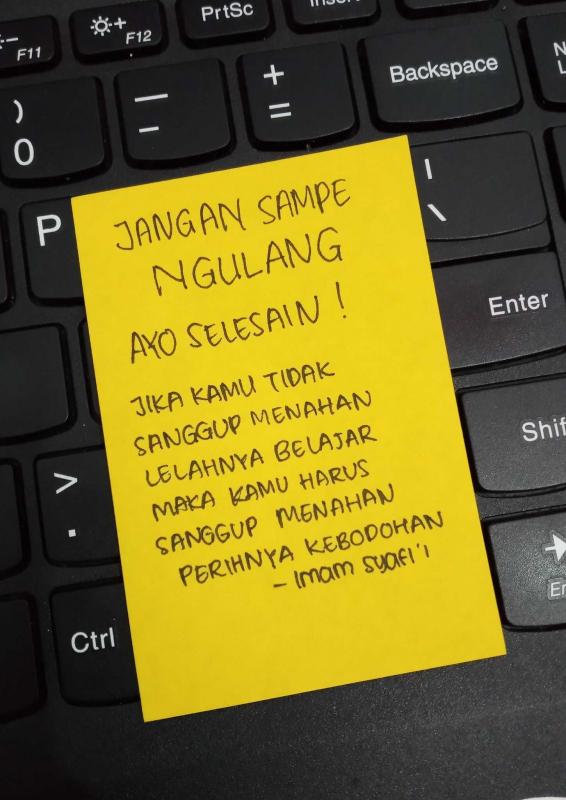 F11
F12
PrtSc
Insert
)
0
—
-
+
=
Backspace
P
|
\
Enter
>
.
Ctrl
JANGAN SAMPE
NGULANG
AYO SELESAIN !
JIKA KAMU TIDAK
SANGGUP MENAHAN
LELAHNYA BELAJAR
MAKA KAMU HARUS
SANGGUP MENAHAN
PERIHNYA KEBODOHAN
- Imam Syafi'i